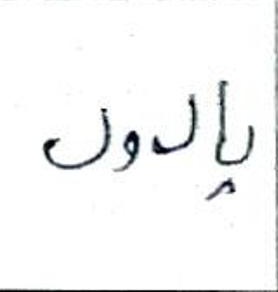 پالدول